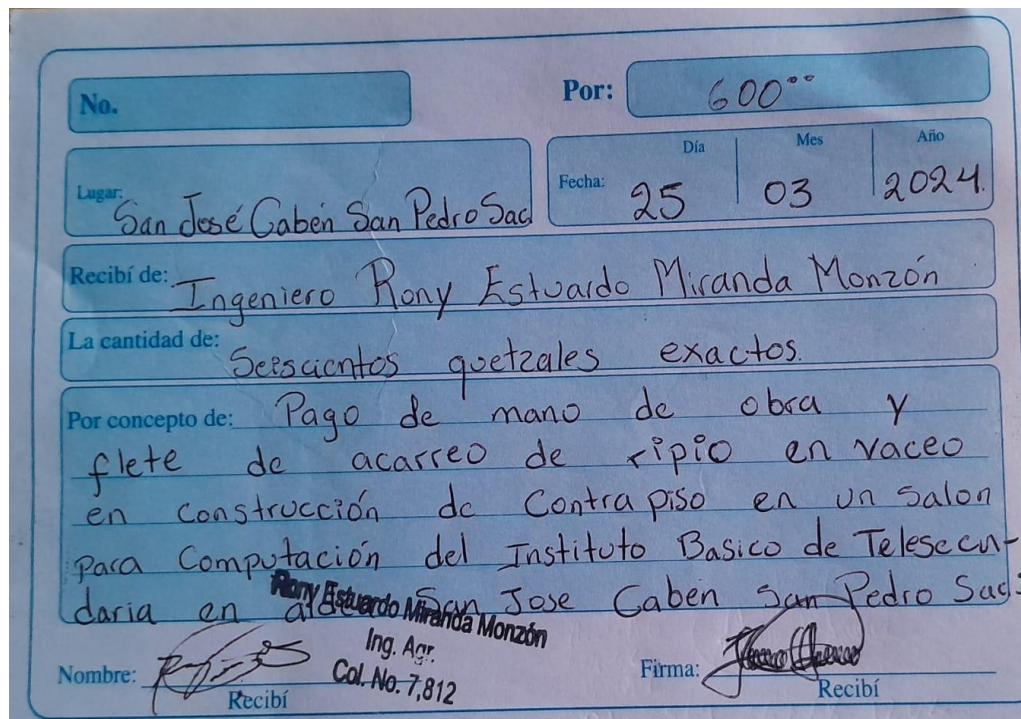 No.
Por: 600°°
Día Mes Año
Lugar: San José Caben San Pedro Sac
Fecha: 25 03 2024.
Recibí de: Ingeniero Rony Estuardo Miranda Monzón
La cantidad de: Seiscientos quetzales exactos.
Por concepto de: Pago de mano de obra y
flete de acarreo de ripio en vaceo
en construcción de Contra piso en un salon
para Computación del Instituto Basico de Telesecun-
daria en San Jose Caben San Pedro Sac.
Rony Estuardo Miranda Monzón
Ing. Agr.
Col. No. 7,812
Nombre:
Recibí
Firma:
Recibí